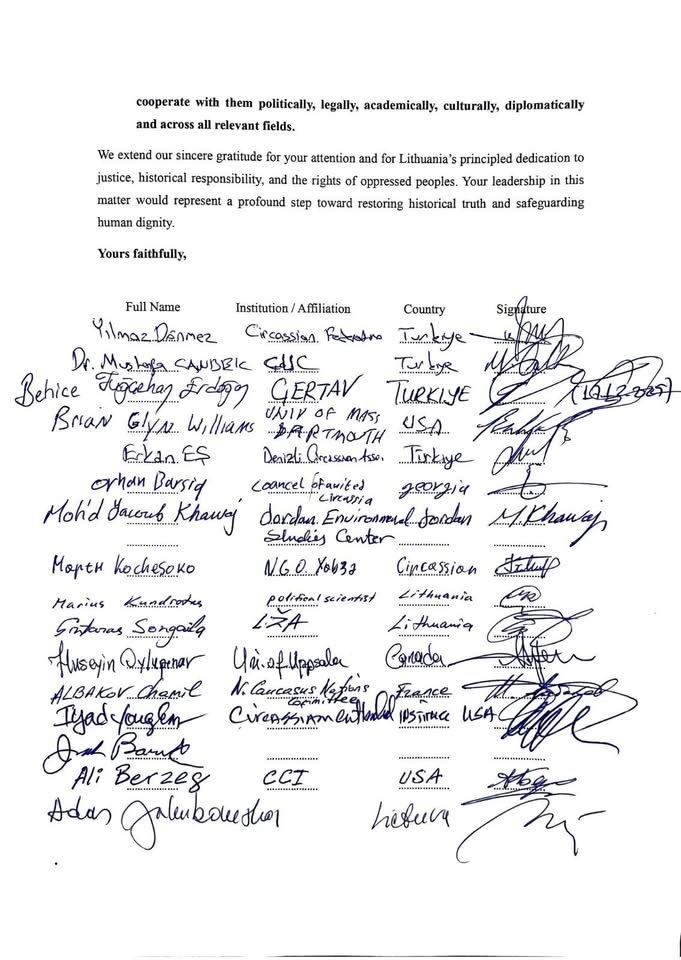 cooperate with them politically, legally, academically, culturally, diplomatically
and across all relevant fields.
We extend our sincere gratitude for your attention and for Lithuania's principled dedication to
justice, historical responsibility, and the rights of oppressed peoples. Your leadership in this
matter would represent a profound step toward restoring historical truth and safeguarding
human dignity.
Yours faithfully,
Full Name Institution / Affiliation Country Signature
Yılmaz Dönmez Circassian Türkiye
Dr. Mustafa CANBEK Türkiye
Behice Tuğcehan Erdoğan GERTAV TURKIYE
Brian Glyn Williams UNIV OF MASS DARTMOUTH USA
Erkan ES Denizli Circassian Asso. Türkiye
Orhan Barsiq Councel of United Circassia georgia
Moh'd Yacoub Khawaj Jordan Environmental Studies Center Jordan M. Khawaj
Kochesoko N.G.O. Circassian
Marius Kundrotas political scientist Lithuania
Gintaras Songaila LŽA Lithuania
Huseyin Uni. of Uppsala Canada
ALBAKOV Chamil N. Caucasus Nations Committee France
Iyad Youghar CIRCASSIAN INSTITUCE USA
Ali Berzeg CCI USA
Adas Jakubauskas Lietuva